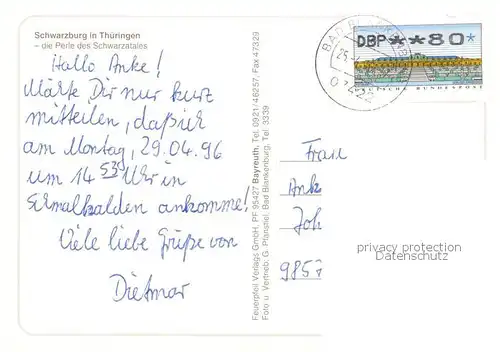 Schwarzburg in Thüringen
– die Perle des Schwarzatales
Hallo Anke!
Möchte Dir nur kurz
mitteilen, daß ich
am Montag, 29.04.96
um 14 53 Uhr in
Schmalkalden ankomme!
Viele liebe Grüße von
Dietmar
Feuerpfeil Verlags GmbH, PF 95427 Bayreuth, Tel. 0921/46257, Fax 47329
Foto u. Vertrieb: G. Pfannstiel, Bad Blankenburg, Tel. 3339
BAD BLANKENBURG
25.
07422
DBP**80*
DEUTSCHE BUNDESPOST
Frau
Anke
Joh
9857
privacy protection
Datenschutz